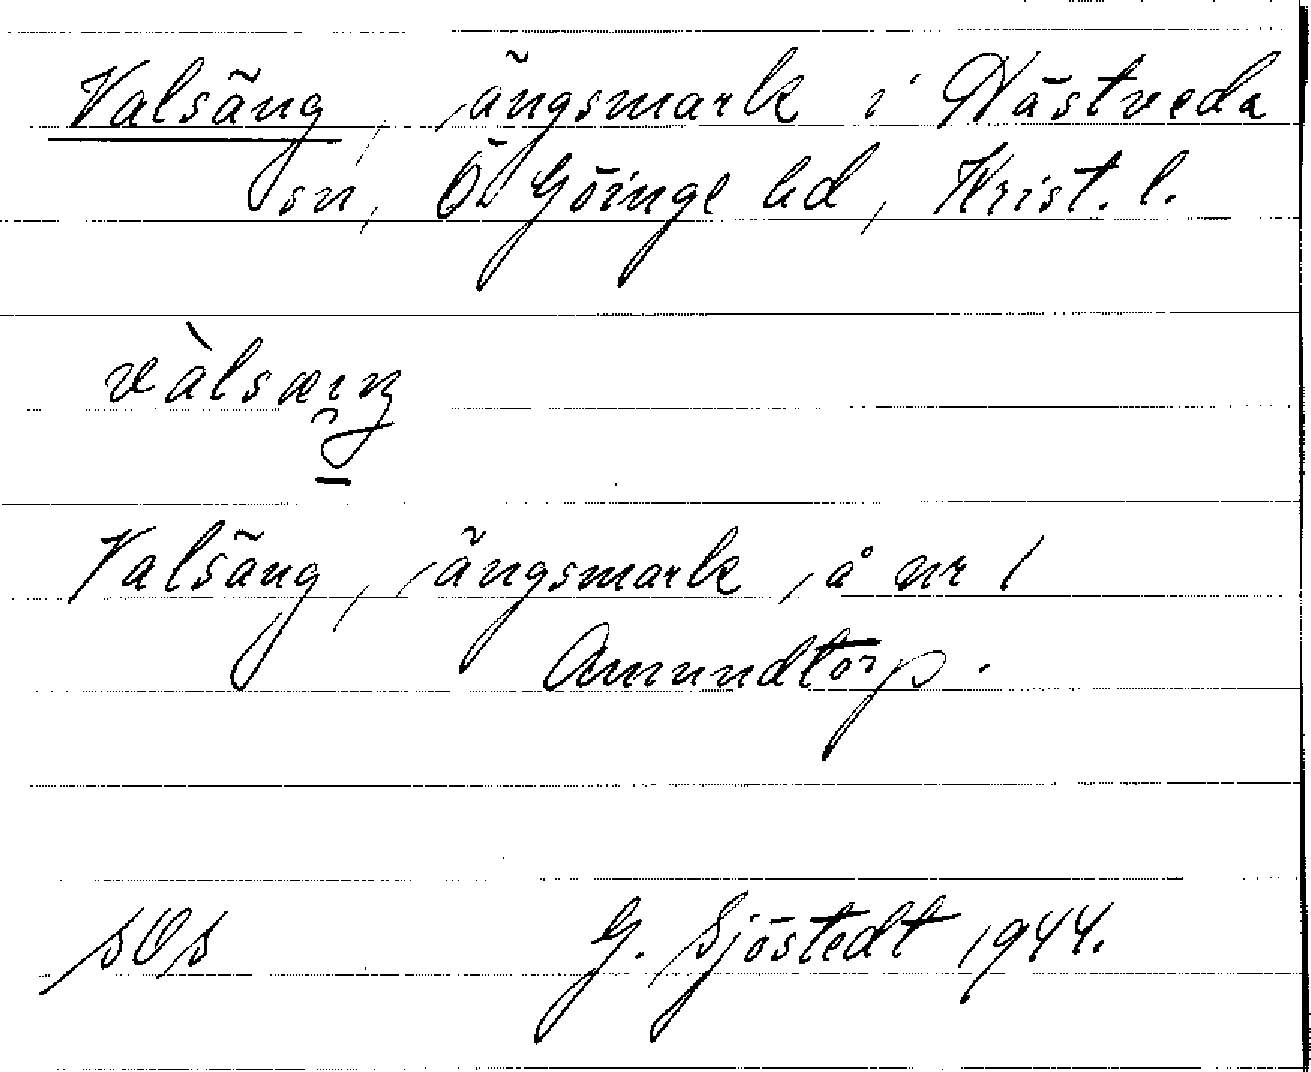 Valsäng, ängsmark i Nästveda
sn, Ö. Göinge hd, Krist. l.
Valsäng, ängsmark, å nr 1
Amundtorp.
sOs G. Sjöstedt 1944.